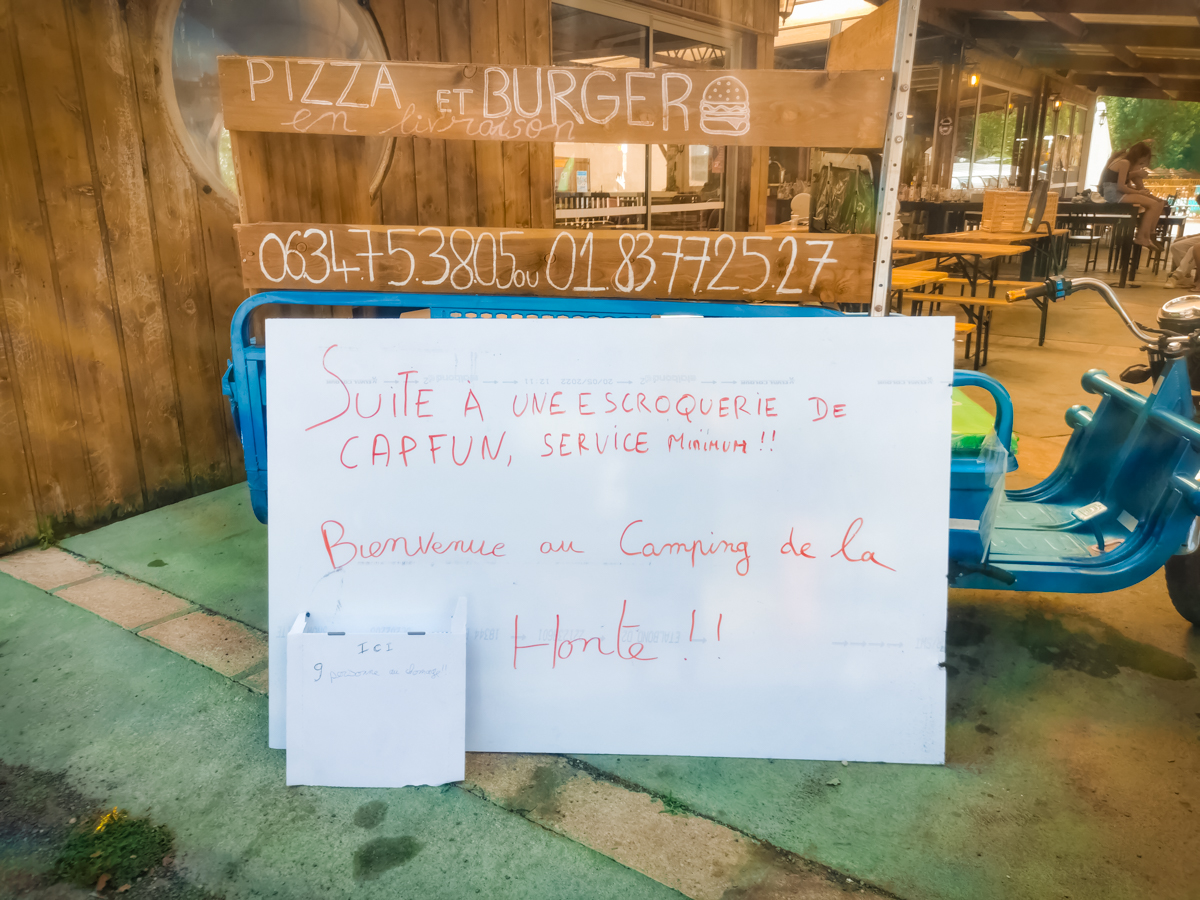 PIZZA ET BURGER
en livraison
06.34.75.38.05 ou 01.83.77.25.27
SUITE A UNE ESCROQUERIE DE
CAPFUN, SERVICE MINIMUM !!
Bienvenue au Camping de la
Honte !!
ICI
9 personne au chomage !!